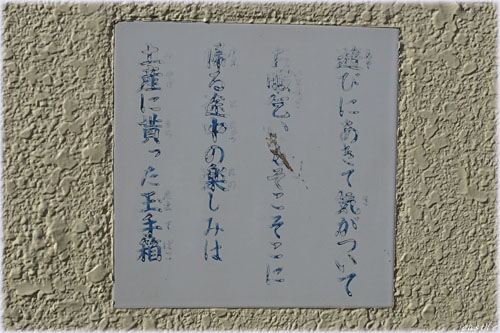 遊びにあきて気がついて
お暇乞いもそこそこに
帰る途中の楽しみは
土産に貰った玉手箱